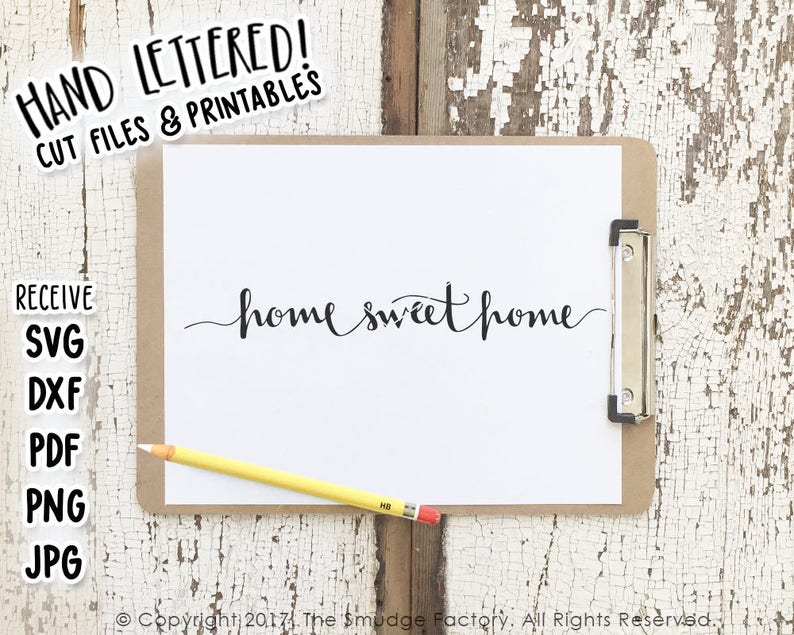 HAND LETTERED!
CUT FILES & PRINTABLES
RECEIVE
SVG
DXF
PDF
PNG
JPG
home sweet home
HB
© Copyright 2017. The Smudge Factory. All Rights Reserved.